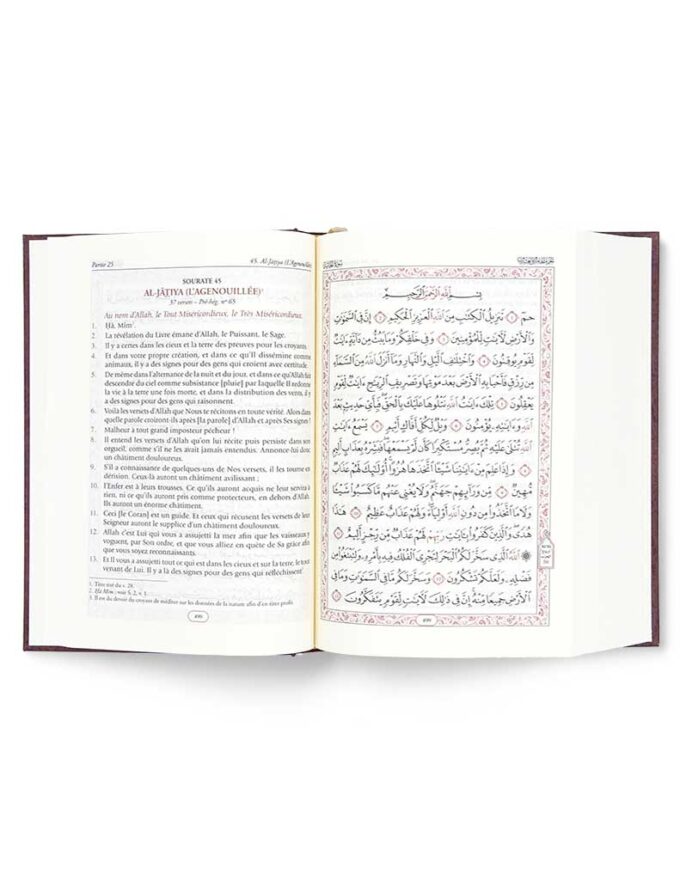 Partie 25
45. Al-Jāṯiya (L'Agenouillée)
SOURATE 45
AL-JĀṮIYA (L'AGENOUILLÉE)¹
37 versets – Pré-hég. n° 65
Au nom d'Allah, le Tout Miséricordieux, le Très Miséricordieux,
1. Ḥâ, Mîm².
2. La révélation du Livre émane d'Allah, le Puissant, le Sage.
3. Il y a certes dans les cieux et la terre des preuves pour les croyants.
4. Et dans votre propre création, et dans ce qu'Il dissémine comme
animaux, il y a des signes pour des gens qui croient avec certitude.
5. De même dans l'alternance de la nuit et du jour, et dans ce qu'Allah fait
descendre du ciel comme subsistance [pluie] par laquelle Il redonne
la vie à la terre une fois morte, et dans la distribution des vents, il y
a des signes pour des gens qui raisonnent.
6. Voilà les versets d'Allah que Nous te récitons en toute vérité. Alors dans
quelle parole croiront-ils après [la parole] d'Allah et après Ses signes !
7. Malheur à tout grand imposteur pécheur !
8. Il entend les versets d'Allah qu'on lui récite puis persiste dans son
orgueil, comme s'il ne les avait jamais entendus. Annonce-lui donc
un châtiment douloureux.
9. S'il a connaissance de quelques-uns de Nos versets, il les tourne en
dérision. Ceux-là auront un châtiment avilissant ;
10. l'Enfer est à leurs trousses. Ce qu'ils auront acquis ne leur servira à
rien, ni ce qu'ils auront pris comme protecteurs, en dehors d'Allah.
Ils auront un énorme châtiment.
11. Ceci [le Coran] est un guide. Et ceux qui récusent les versets de leur
Seigneur auront le supplice d'un châtiment douloureux.
12. Allah c'est Lui qui vous a assujetti la mer afin que les vaisseaux y
voguent, par Son ordre, et que vous alliez en quête de Sa grâce afin
que vous soyez reconnaissants.
13. Et Il vous a assujetti tout ce qui est dans les cieux et sur la terre, le tout
venant de Lui. Il y a là des signes pour des gens qui réfléchissent³.
1. Titre tiré du v. 28.
2. Ḥa Mîm : voir S. 2, v. 1.
3. Il est du devoir du croyant de méditer sur les données de la nature afin d'en tirer profit.
499
بِسْمِ اللَّهِ الرَّحْمَٰنِ الرَّحِيمِ
حمٓ ١ تَنزِيلُ الْكِتَٰبِ مِنَ اللَّهِ الْعَزِيزِ الْحَكِيمِ ٢ إِنَّ فِي السَّمَٰوَٰتِ
وَالْأَرْضِ لَءَايَٰتٍ لِّلْمُؤْمِنِينَ ٣ وَفِي خَلْقِكُمْ وَمَا يَبُثُّ مِن دَآبَّةٍ ءَايَٰتٌ
لِّقَوْمٍ يُوقِنُونَ ٤ وَاخْتِلَٰفِ الَّيْلِ وَالنَّهَارِ وَمَآ أَنزَلَ اللَّهُ مِنَ السَّمَآءِ
مِن رِّزْقٍ فَأَحْيَا بِهِ الْأَرْضَ بَعْدَ مَوْتِهَا وَتَصْرِيفِ الرِّيَٰحِ ءَايَٰتٌ لِّقَوْمٍ
يَعْقِلُونَ ٥ تِلْكَ ءَايَٰتُ اللَّهِ نَتْلُوهَا عَلَيْكَ بِالْحَقِّ فَبِأَيِّ حَدِيثٍ بَعْدَ
اللَّهِ وَءَايَٰتِهِ يُؤْمِنُونَ ٦ وَيْلٌ لِّكُلِّ أَفَّاكٍ أَثِيمٍ ٧ يَسْمَعُ ءَايَٰتِ
اللَّهِ تُتْلَىٰ عَلَيْهِ ثُمَّ يُصِرُّ مُسْتَكْبِرًا كَأَن لَّمْ يَسْمَعْهَا فَبَشِّرْهُ بِعَذَابٍ أَلِيمٍ
٨ وَإِذَا عَلِمَ مِنْ ءَايَٰتِنَا شَيْئًا اتَّخَذَهَا هُزُوًا أُو۟لَٰٓئِكَ لَهُمْ عَذَابٌ
مُّهِينٌ ٩ مِّن وَرَآئِهِمْ جَهَنَّمُ وَلَا يُغْنِي عَنْهُم مَّا كَسَبُوا شَيْئًا
وَلَا مَا اتَّخَذُوا مِن دُونِ اللَّهِ أَوْلِيَآءَ وَلَهُمْ عَذَابٌ عَظِيمٌ ١٠ هَٰذَا
هُدًى وَالَّذِينَ كَفَرُوا بِءَايَٰتِ رَبِّهِمْ لَهُمْ عَذَابٌ مِّن رِّجْزٍ أَلِيمٌ ١١
اللَّهُ الَّذِي سَخَّرَ لَكُمُ الْبَحْرَ لِتَجْرِيَ الْفُلْكُ فِيهِ بِأَمْرِهِ وَلِتَبْتَغُوا مِن
فَضْلِهِ وَلَعَلَّكُمْ تَشْكُرُونَ ١٢ وَسَخَّرَ لَكُم مَّا فِي السَّمَٰوَٰتِ وَمَا فِي
الْأَرْضِ جَمِيعًا مِّنْهُ إِنَّ فِي ذَٰلِكَ لَءَايَٰتٍ لِّقَوْمٍ يَتَفَكَّرُونَ ١٣
٤٩٩